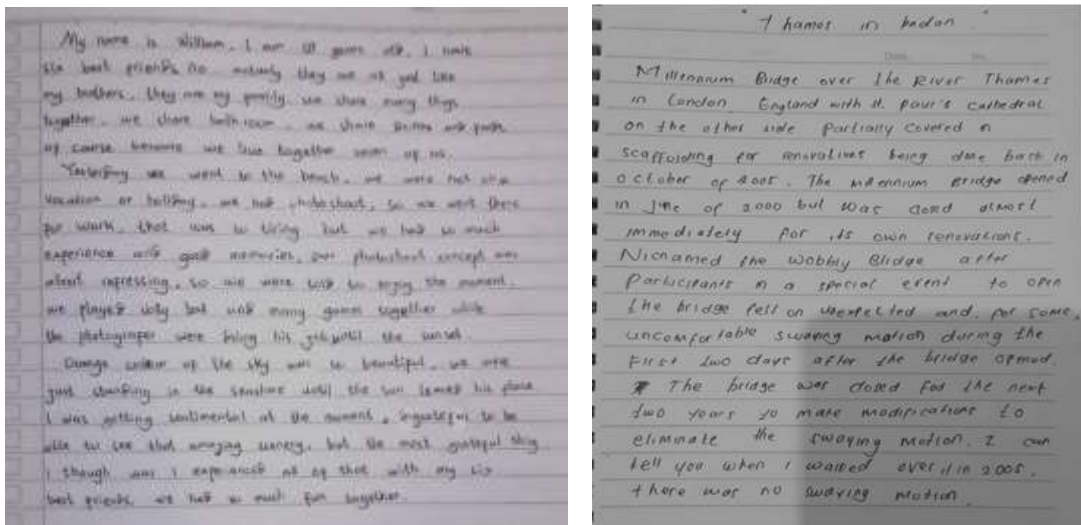 My name is William. I am 18 years old. I have
six best friends no actually they are at god like
my brothers, they are my family. we share many things
together. we share bathroom. we share drinks and foods
of course because we live together seven of us.
Yesterday we went to the beach. we were not on a
vacation or holiday, we had photoshoot, so we went there
for work, that was so tiring but we had so much
experience and good memories, our photoshoot concept was
about refressing, so we were told to enjoy the moment.
we played volly ball and many games together while
the photograper were doing his job until the sunset.
Orange colour of the sky was so beautiful, we were
just standing in the seashore until the sun leaves his place
I was getting sentimental at the moment, grateful to be
able to see that amazing scenery, but the most grateful thing
I though was I experianced all of that with my six
best friends. we had so much fun together.
" Thames in London "
Millennium Bridge over the River Thames
in London England with st. paul's cathedral
on the other side Partially covered in
scaffolding for renovations being done back in
October of 2005. The millennium Bridge opened
in June of 2000 but was closed almost
immediately for its own renovations.
Nicnamed the Wobbly Bridge after
Participants in a special event to open
the bridge fell on unexpected and, for some,
uncomfortable swaying motion during the
First two days after the bridge opened.
The bridge was closed for the next
two years to make modifications to
eliminate the swaying motion. I can
tell you when I walked over it in 2005.
there was no swaying motion.